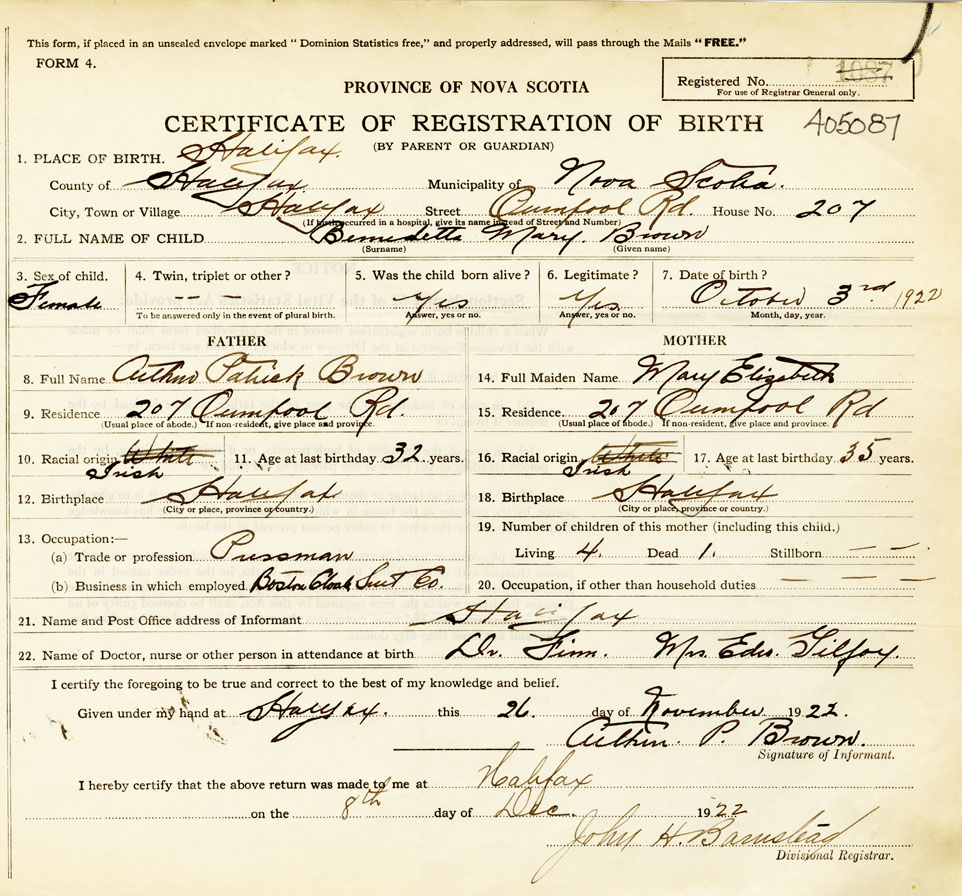 This form, if placed in an unsealed envelope marked " Dominion Statistics free," and properly addressed, will pass through the Mails "FREE."
FORM 4.
Registered No. 1087
For use of Registrar General only.
PROVINCE OF NOVA SCOTIA
CERTIFICATE OF REGISTRATION OF BIRTH 405087
(BY PARENT OR GUARDIAN)
1. PLACE OF BIRTH. Halifax.
County of Halifax. Municipality of Nova Scotia.
City, Town or Village Halifax Street Rd. House No. 207
(If birth occurred in a hospital, give its name instead of Street and Number)
2. FULL NAME OF CHILD Benedetta Mary. Brown
(Surname) (Given name)
3. Sex of child. 4. Twin, triplet or other? 5. Was the child born alive? 6. Legitimate? 7. Date of birth?
Female — — — Yes Yes October 3rd 1922
To be answered only in the event of plural birth. Answer, yes or no. Answer, yes or no. Month, day, year.
FATHER MOTHER
8. Full Name Arthur Patrick Brown 14. Full Maiden Name Mary Elizabeth
9. Residence 207 Rd. 15. Residence. 207 Rd
(Usual place of abode.) If non-resident, give place and province. (Usual place of abode.) If non-resident, give place and province.
10. Racial origin White 11. Age at last birthday 32 years. 16. Racial origin White 17. Age at last birthday 35 years.
Irish Irish
12. Birthplace Halifax 18. Birthplace Halifax
(City or place, province or country.) (City or place, province or country.)
19. Number of children of this mother (including this child.)
13. Occupation:—
(a) Trade or profession Pressman Living 4. Dead 1. Stillborn — —
(b) Business in which employed Boston Cloak Suit Co. 20. Occupation, if other than household duties — — —
21. Name and Post Office address of Informant Halifax
22. Name of Doctor, nurse or other person in attendance at birth Dr. Finn. Mrs Edw. Gilfoy.
I certify the foregoing to be true and correct to the best of my knowledge and belief.
Given under my hand at Halifax. this 26. day of November 1922.
Arthur. P. Brown.
Signature of Informant.
I hereby certify that the above return was made to me at Halifax
on the 8th day of Dec. 1922
John H. Barnstead
Divisional Registrar.